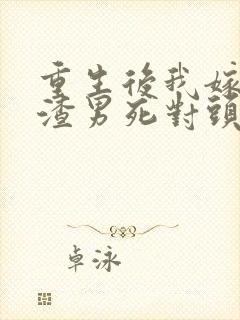 重生後我嫁
渣男死對頭
卓泳